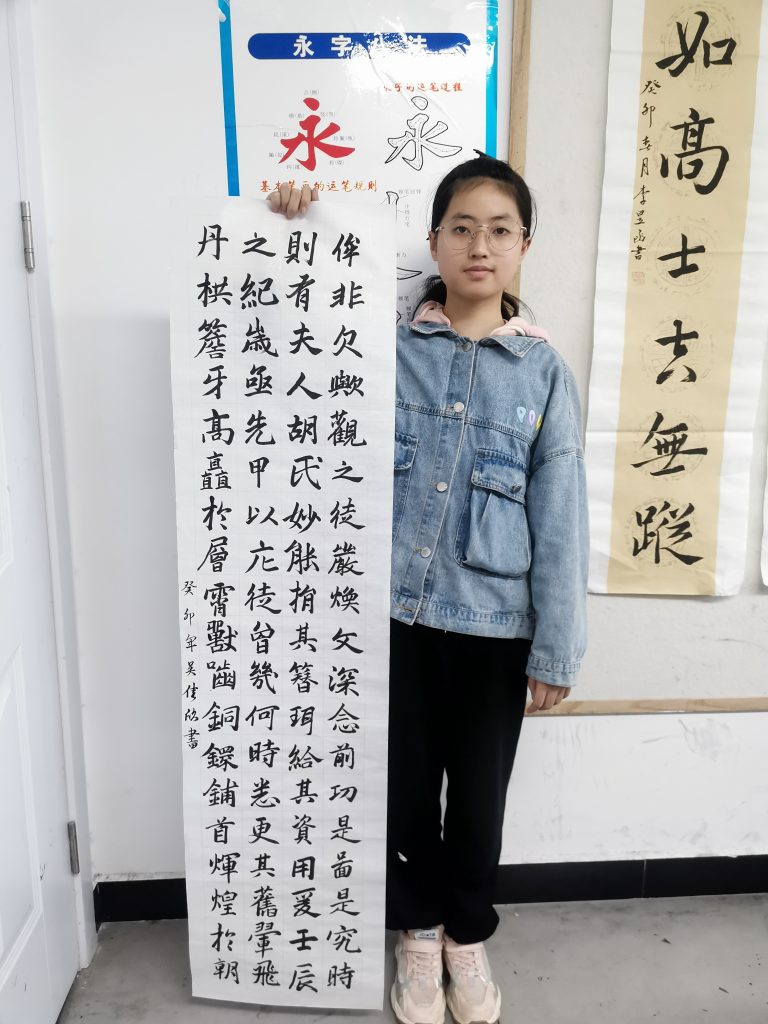 永字八法
永字的运笔过程
永
永
基本笔画的运笔规则
侔非欠歟觀之徒嚴煥文深念前功是啚是究時
則有夫人胡氏妙能捐其簪珥給其資用爰壬辰
之紀歳亟先甲以庀徒曾幾何時悉更其舊翬飛
丹栱簷牙高矗於層霄獸嚙銅鐶鋪首輝煌於朝
癸卯年吴佳欣書
如高士去無蹤
癸卯春月李昱書